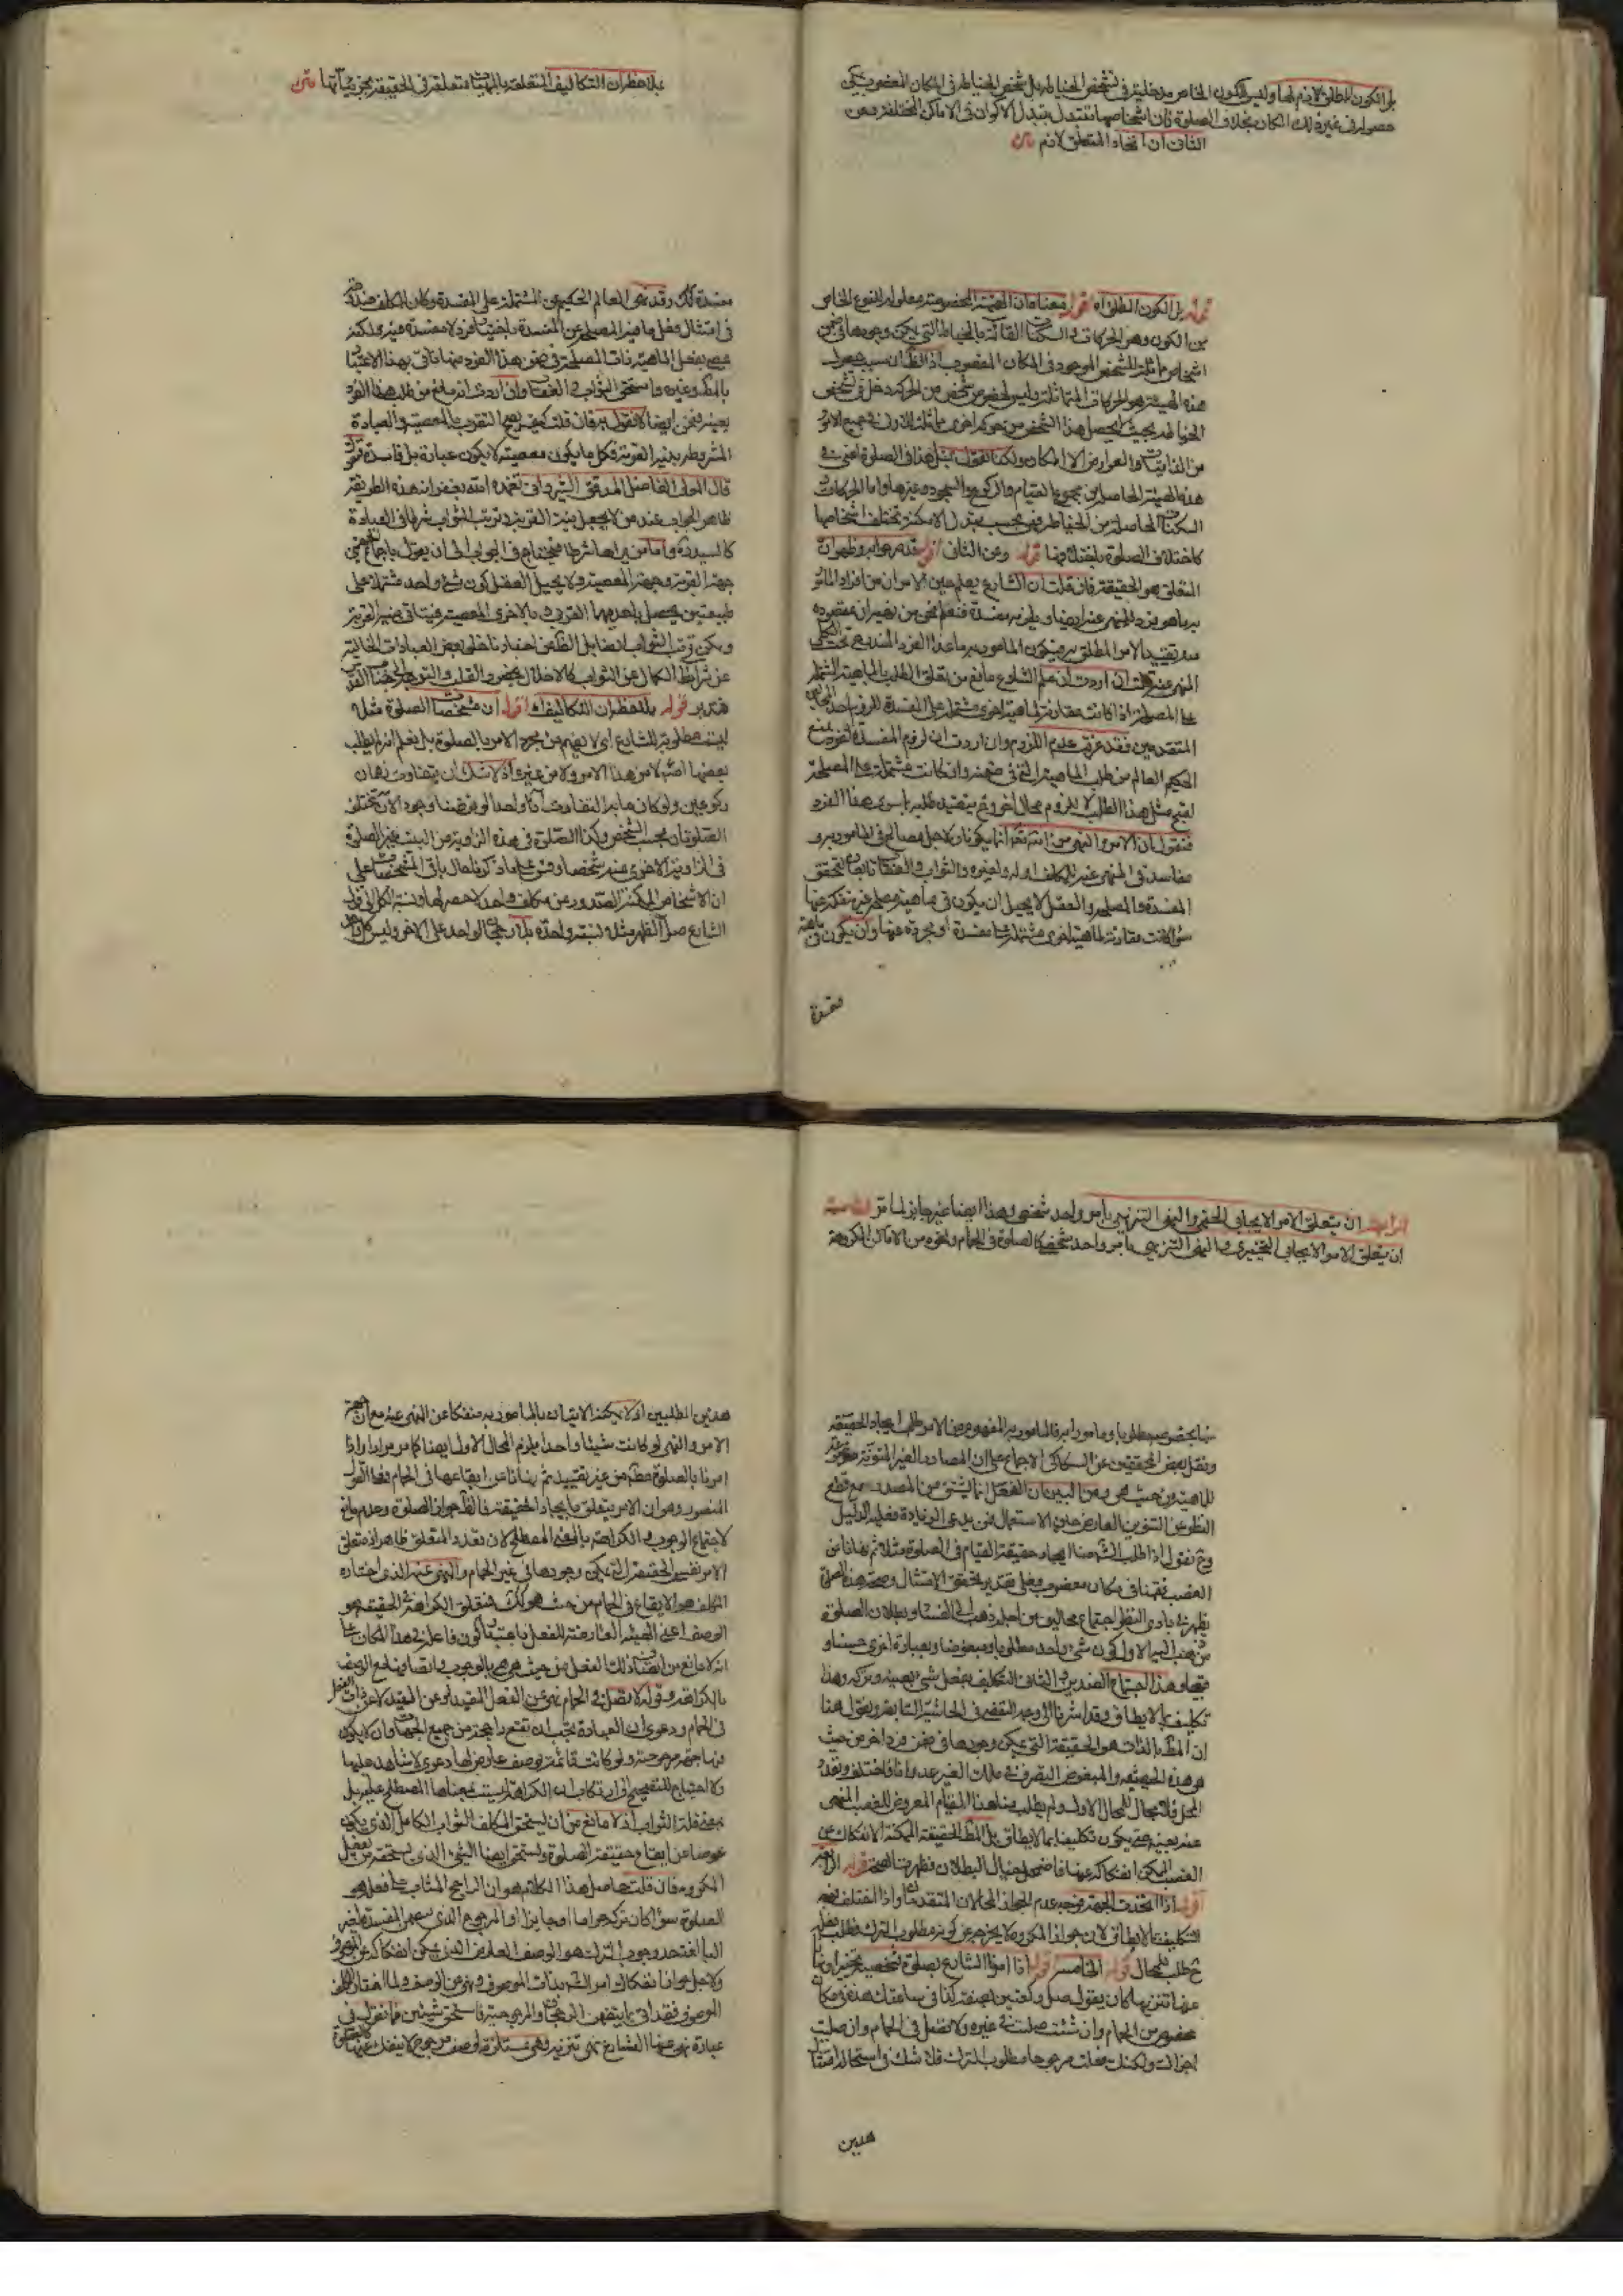 بل الكون المطلق لازم لها وليس الكون الخاص مدخلية في تشخص الخياطة بل شخص الخياطة في المكان المغصوب يمكن
حصوله في غير ذلك المكان بخلاف الصلوة فان اشخاصها تتبدل بتبدل الاكوان في الاماكن المختلفة وعن
الثاني ان اتحاد المتعلق لازم متن
قوله بل الكون المطلق اه اقول معناه ان الهيئة المخصوصة معلولة للنوع الخاص
من الكون وهو الحركات والسكنات القائمة بالخياط التي يمكن وجودها في ضمن
هذه الهيئة هو الحركات المتماثلة وليس لخصوص شخص من الحركة دخل في تشخص
من القابليات والعوارض الا المكان ولكنا نقول بمثل هذا في الصلوة اعني
هذه الهيئة الحاصلة من مجموع القيام والركوع والسجود وغيرها واما الحركات و
السكنات الحاصلة من الخياط فهي بحسب تبدل الامكنة تختلف اشخاصها
كاختلاف الصلوة باختلافها قوله وعن الثاني اقول قد مر جوابه وظهر ان
المتعلق هو الحقيقة فان قلت ان الشارع يعلم حين الامر ان من افراد المأمور
به ما هو فرد للمنهي عنه ايضا ويلزمه مفسدة فنعلم نحن من نهيه ان مقصوده
منه تقييد الامر المطلق به فيكون المأمور به ما عدا الفرد المندرج تحت الكلي
المنهي عنه قلت ان اردت ان علم الشارع مانع من تعلق الطلب بالماهية المشتملة
على المصلحة اذا كانت مقارنة لماهية اخرى مشتملة على المفسدة للزوم احد المحالين
المتقدمين فقد عرفت عدم اللزوم وان اردت ان لزوم المفسدة لفرد يمنع
الحكيم العالم من طلب الماهية التي في ضمنه وان كانت مشتملة على المصلحة
لقبح مثل هذا الطلب لا للزوم محال اخر فيتقيد طلبه بما سوى هذا الفرد
فنقول ان الامر والنهي من الشارع انما يكونان لاجل مصالح في المأمور به و
مفاسد في المنهي عنه للمكلف اوله ولغيره والثواب والعقاب تابعان لتحقق
المفسدة والمصلحة والعقل لا يحيل ان يكون في ماهية مصلحة غير منفكة عنها
سواء كانت مقارنة لماهية اخرى مشتملة على مفسدة او مجردة عنها وان يكون في ماهية
مفسدة
بملاحظة ان التكاليف المتعلقة بالمهيات متعلقة في الحقيقة بجزئياتها متن
مفسدة كك وقد نهى العالم الحكيم عن المشتملة على المفسدة وكان المكلف مندوحة
في امتثال وفعل ما فيه المصلحة عن المفسدة باختيار فرد لا مفسدة فيه ولكنه
عصى بفعل الماهية ذات المصلحة في ضمن هذا الفرد
بالمنكر وغيره واستحق الثواب والعقاب وان اردت انه مانع من طلب هذا الفرد
بعينه فنحن ايضا لا نقول به فان قلت كيف يصح التقرب بالمعصية والعبادة
المشروطة بنية القربة فكل ما يكون معصية لا يكون عبادة بل فاسدة قلت
قال المولى الفاضل المدقق الشيرواني تغمده الله بغفرانه هذه الطريقة
ظاهر الجواب عند من لا يجعل نية القربة وترتب الثواب شرطا في العبادة
كالسيد ره واما من يراها شرطا فيحتاج في الجواب الى ان يقول باجتماع جهتي
جهة القربة وجهة المعصية ولا يحيل العقل كون شئ واحد مشتملا على
طبيعتين يحصل باحديهما القرب وبالاخرى المعصية فيتاتى فيه القربة
ويمكن ترتب الثواب
عن شرائط الكمال عن الثواب كالاخلال بحضور القلب والتوجه
فتدبر قوله بملاحظة ان التكاليف اه اقول ان مشخصات الصلوة مثلا
ليست مطلوبة للشارع اي لا يفهم من مجرد الامر بالصلوة بل نعلم انه لم يطلب
بعضها اصلا لا من هذا الامر ولا من غيره اذ لا شك ان يتفاوت زمان
ركوعين ولو كان ما به التفاوت آنا واحدا لو فرضنا وجود الآن تختلف
الصلوتان بحسب الشخص وكذا الصلوة في هذه الزاوية من البيت غير الصلوة
في الزاوية الاخرى منه شخصا وقس على ما ذكرنا حال باقي المشخصات على
ان الاشخاص الممكنة الصدور عن مكلف واحد لا حصر لها ونسبة الكل الى قول
الشارع صل الظهر مثلا نسبة واحدة بلا رجحان الواحد على الاخر وليس كل واحد
الرابعة ان يتعلق الامر الايجابي الحتمي والنهي التنزيهي بامر واحد شخصي وهذا ايضا غير جايز لما مر الخامسة
ان يتعلق الامر الايجابي التخييري والنهي التنزيهي بامر واحد شخصي كالصلوة في الحمام ونحوه من الاماكن المكروهة
منها بخصوصه مطلوبا ومامورا به فالمامور به المفهوم من الامر طلب ايجاد الحقيقة
ونقل بعض المحققين عن السكاكي الاجماع على ان المصادر الغير المنونة موضوعة
للماهية من حيث هي ومن البين ان الفعل انما يشتق من المصدر مع قطع
النظر عن التنوين العارض حين الاستعمال فمن يدعي الزيادة فعليه الدليل
وح نقول اذا طلب الشارع منا ايجاد حقيقة القيام في الصلوة مثلا ثم نهانا عن
الغصب فقمنا في مكان مغصوب فعلى تقدير تحقق الامتثال وصحة هذه الصلوة
يظهر في بادي النظر اجتماع محالين من اجله ذهب الى الفساد وبطلان الصلوة
من ذهب اليه الاول كون شئ واحد مطلوبا ومبغوضا وبعبارة اخرى حسنا و
قبيحا وهذا اجتماع الضدين والثاني التكليف بفعل شئ بعينه وتركه وهذا
تكليف بما لا يطاق وقد اشرنا الى وجه التفصي في الحاشية السابقة ونقول هنا
ان المطلوب بالذات هو الحقيقة التي يمكن وجودها في ضمن فرد اخر من حيث
هو هذه الحيثية والمبغوض التصرف في ملك الغير عدوانا فاختلف وتعدد
المحل فلا مجال للمحال الاول ولم يطلب منا هذا القيام المعروض للغصب المنهي
عنه بعينه حتى يكون تكليفا بما لا يطاق بل المطلوب الحقيقة الممكنة الانفكاك عن
الغصب الممكن انفكاكه عنها فاضمحل خيال البطلان وظهرت الصحة قوله الرابعة
اقول اذا اتحدت الجهة فوجه عدم الجواز المحالان المتقدمان واذا اختلف فهو
التكليف بما لا يطاق لان جواز المكروه لا يخرجه عن كونه مطلوب الترك فطلب فعله
ح طلب للمحال قوله الخامسة اقول اذا امرنا الشارع بصلوة شخصية تخييرا ونهانا
عنها تنزيها كان يقول صل ركعتين بصفة كذا في ساعتك هذه في مكان
مخصوص من الحمام وان شئت صليت في غيره ولا تفعل في الحمام وان صليت
اجزأت ولكنك فعلت مرجوحا مطلوب الترك فلا شك في استحالة امتثال
هذين
هذين الطلبين اذ لا يمكننا الاتيان بالمامور به منفكا عن المنهي عنه مع ان جهة
الامر والنهي لو كانت شيئا واحدا يلزم المحال الاول ايضا كما مر مرارا واذا
امرنا بالصلوة مطلقا من غير تقييد ثم نهانا عن ايقاعها في الحمام فعلى القول
المنصور وهو ان الامر يتعلق بايجاد الحقيقة فالظاهر جواز الصلوة وعدم مانع
لاجتماع الوجوب والكراهة بالمعنى المصطلح لان تعدد المتعلق ظاهر اذ متعلق
الامر نفس الحقيقة التي يمكن وجودها في غير الحمام والمنهي عنه الذي اختاره
المكلف هو الايقاع في الحمام من حيث هو كك فمتعلق الكراهة في الحقيقة هو
الوصف اعني الهيئة العارضة للفعل باعتبار كون فاعله في هذا المكان
اذ لا مانع من اتصاف ذلك الفعل من حيث هو هو بالوجوب واتصافه مع الوصف
بالكراهة وقوله لا تصل في الحمام نهي عن الفعل المقيد لا عن ذات الفعل
في الحمام ودعوى ان العبادة يجب ان تقع راجحة من جميع الجهات وان لا يكون
فيها جهة مرجوحة ولو كانت قائمة بوصف عارض لها دعوى لا شاهد عليها
ولا احتياج للتصحيح الى ارتكاب ان الكراهة ليست بمعناها المصطلح عليه بل
بمعنى قلة الثواب اذ لا مانع من ان يستحق المكلف الثواب الكامل الذي يكون
عوضا عن ايقاع حقيقة الصلوة ويستحق ايضا الشئ الذي يستحقه من يفعل
المكروه فان قلت حاصل هذا الكلام هو ان الراجح المثاب على فعله هو
الصلوة سواء كان تركه حراما او جايزا او المرجوح الذي
ولاجل جواز انفكاك امر الشارع بذات الموصوف ونهى عن الوصف
الموصوف فقد اتى بما يتضمن الرجحان والمرجوحية فاستحق شيئين فما تقول في
عبادة نهى عنها الشارع نهي تنزيه وهي مستلزمة لوصف مرجوح لا ينفك عنها